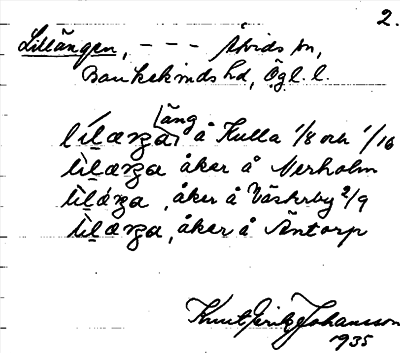 2.
Lillängen, - - - Åvids sn,
Bankekinds hd, Ögl. l.
äng
lílæŋa å Kulla 1/8 och 1/16
lìlæŋa åker å Nerholm
lìlæ̀ŋa, åker å Väskrby 2/9
lìlæŋa, åker å Äntorp
Knut Eritz Johansson
1935